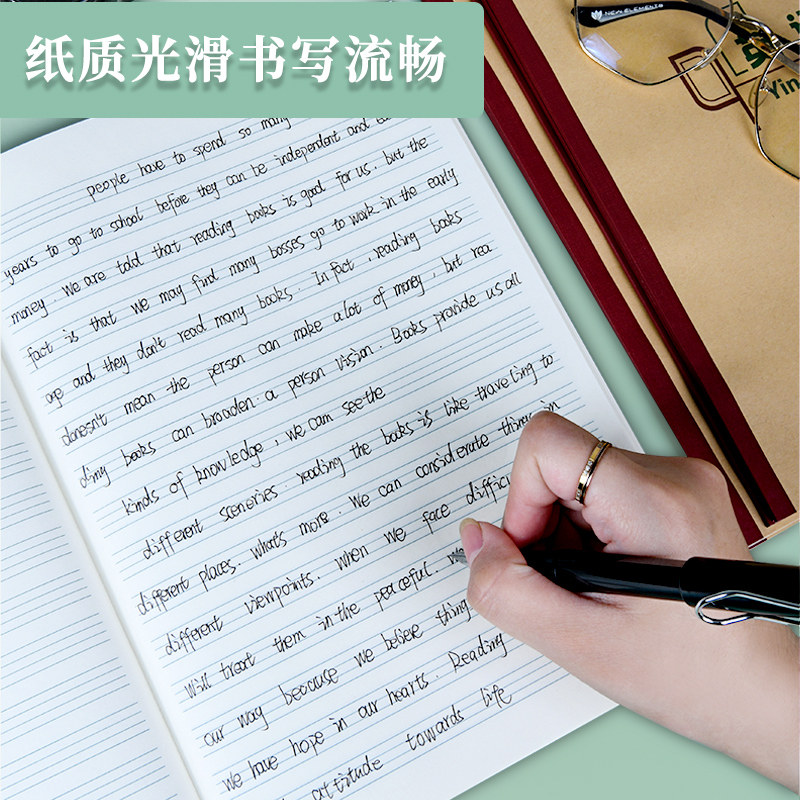 纸质光滑书写流畅
NEW ELEMENTS
Yin
people have to spend so many
years to go to school before they can be independent and
money. We are told that reading books is good for us. but the
fact is that we may find many bosses go to work in the early
age and they don't read many books. In fact, reading books
doesn't mean the person can make a lot of money, but rea
ding books can broaden a person vision. Books provide us all
kinds of knowledge, we cam see the
different sceneries. reading the books is like traveling to
different places. What's more. We can considerate things in
different viewpoints. When we face difficu
will treat them in the peaceful. we
our way because we believe thing
we have hope in our hearts. Reading
attitude towards life